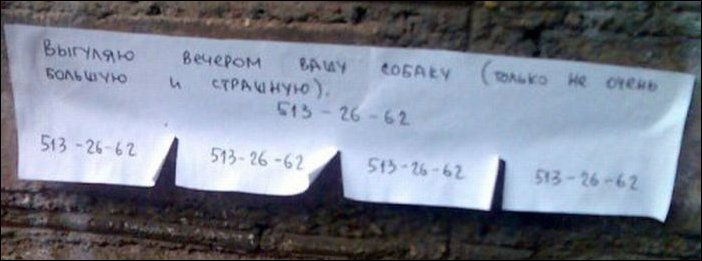 Выгуляю вечером вашу собаку (только не очень
большую и страшную).
513-26-62
513-26-62
513-26-62
513-26-62
513-26-62